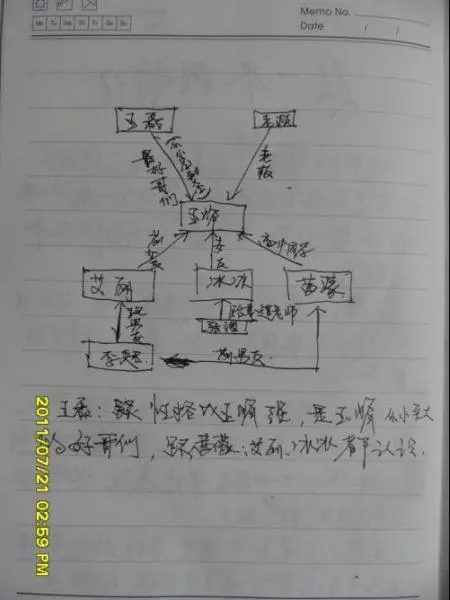 Memo No.
Mo Tu We Th Fr Sa Su
Date / /
王磊
老板
最好哥们
从小玩到大
老板
王峰
前女友
女友
高中同学
艾丽
冰冰
苗蒙
现男友
跆拳道老师
前男友
王磊：
性格比王峰强，是王峰从小玩大
的好哥们，跟苗蒙、艾丽、冰冰都认识.
2011/07/21 02:59 PM